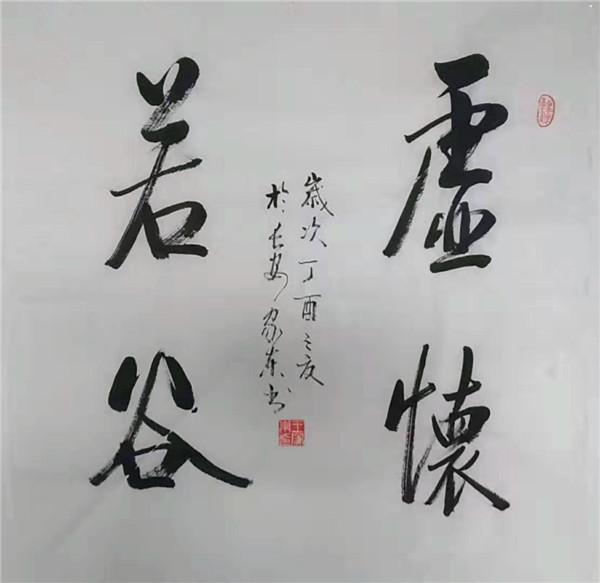 虛懷
若谷
歲次丁酉之夏
於長安家東書